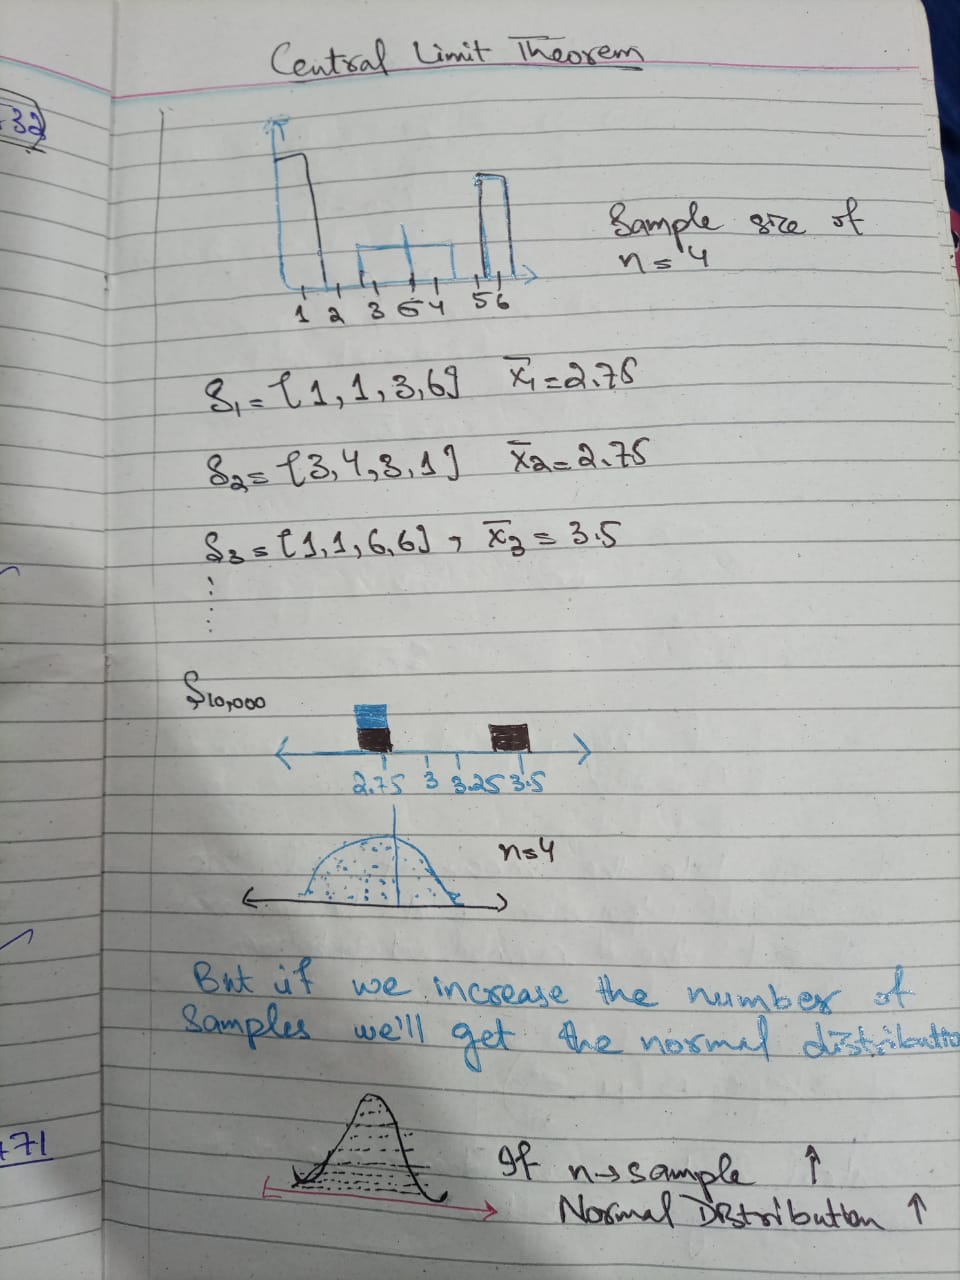 Central Limit Theorem
32
1 2 3 5 4 5 6
Sample size of
n=4
S1 = {1, 1, 3, 6} x̄1 = 2.75
S2 = {3, 4, 3, 1} x̄2 = 2.75
S3 = {1, 1, 6, 6}, x̄3 = 3.5
S10,000
2.75 3 3.25 3.5
n=4
But if we increase the number of
Samples we'll get the normal distributio
+71
If n→sample ↑
Normal Distribution ↑